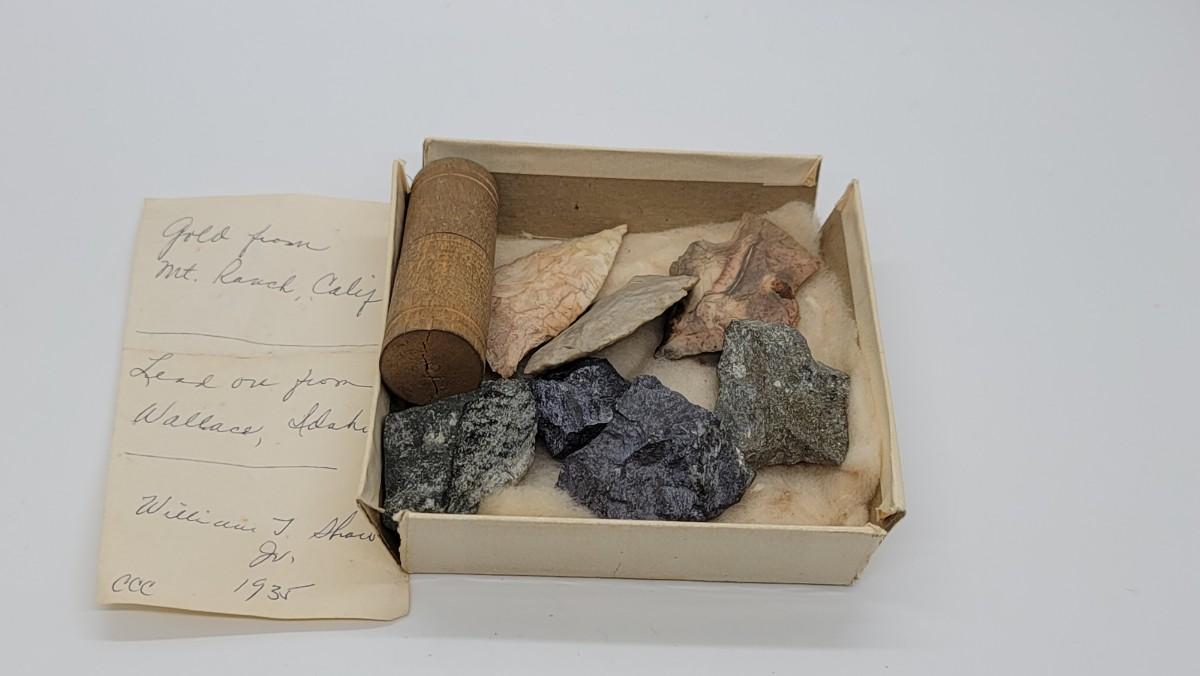 Gold from
Mt. Ranch, Calif
Lead ore from
Wallace, Idaho
William T. Shaw
Jr.
CCC 1935